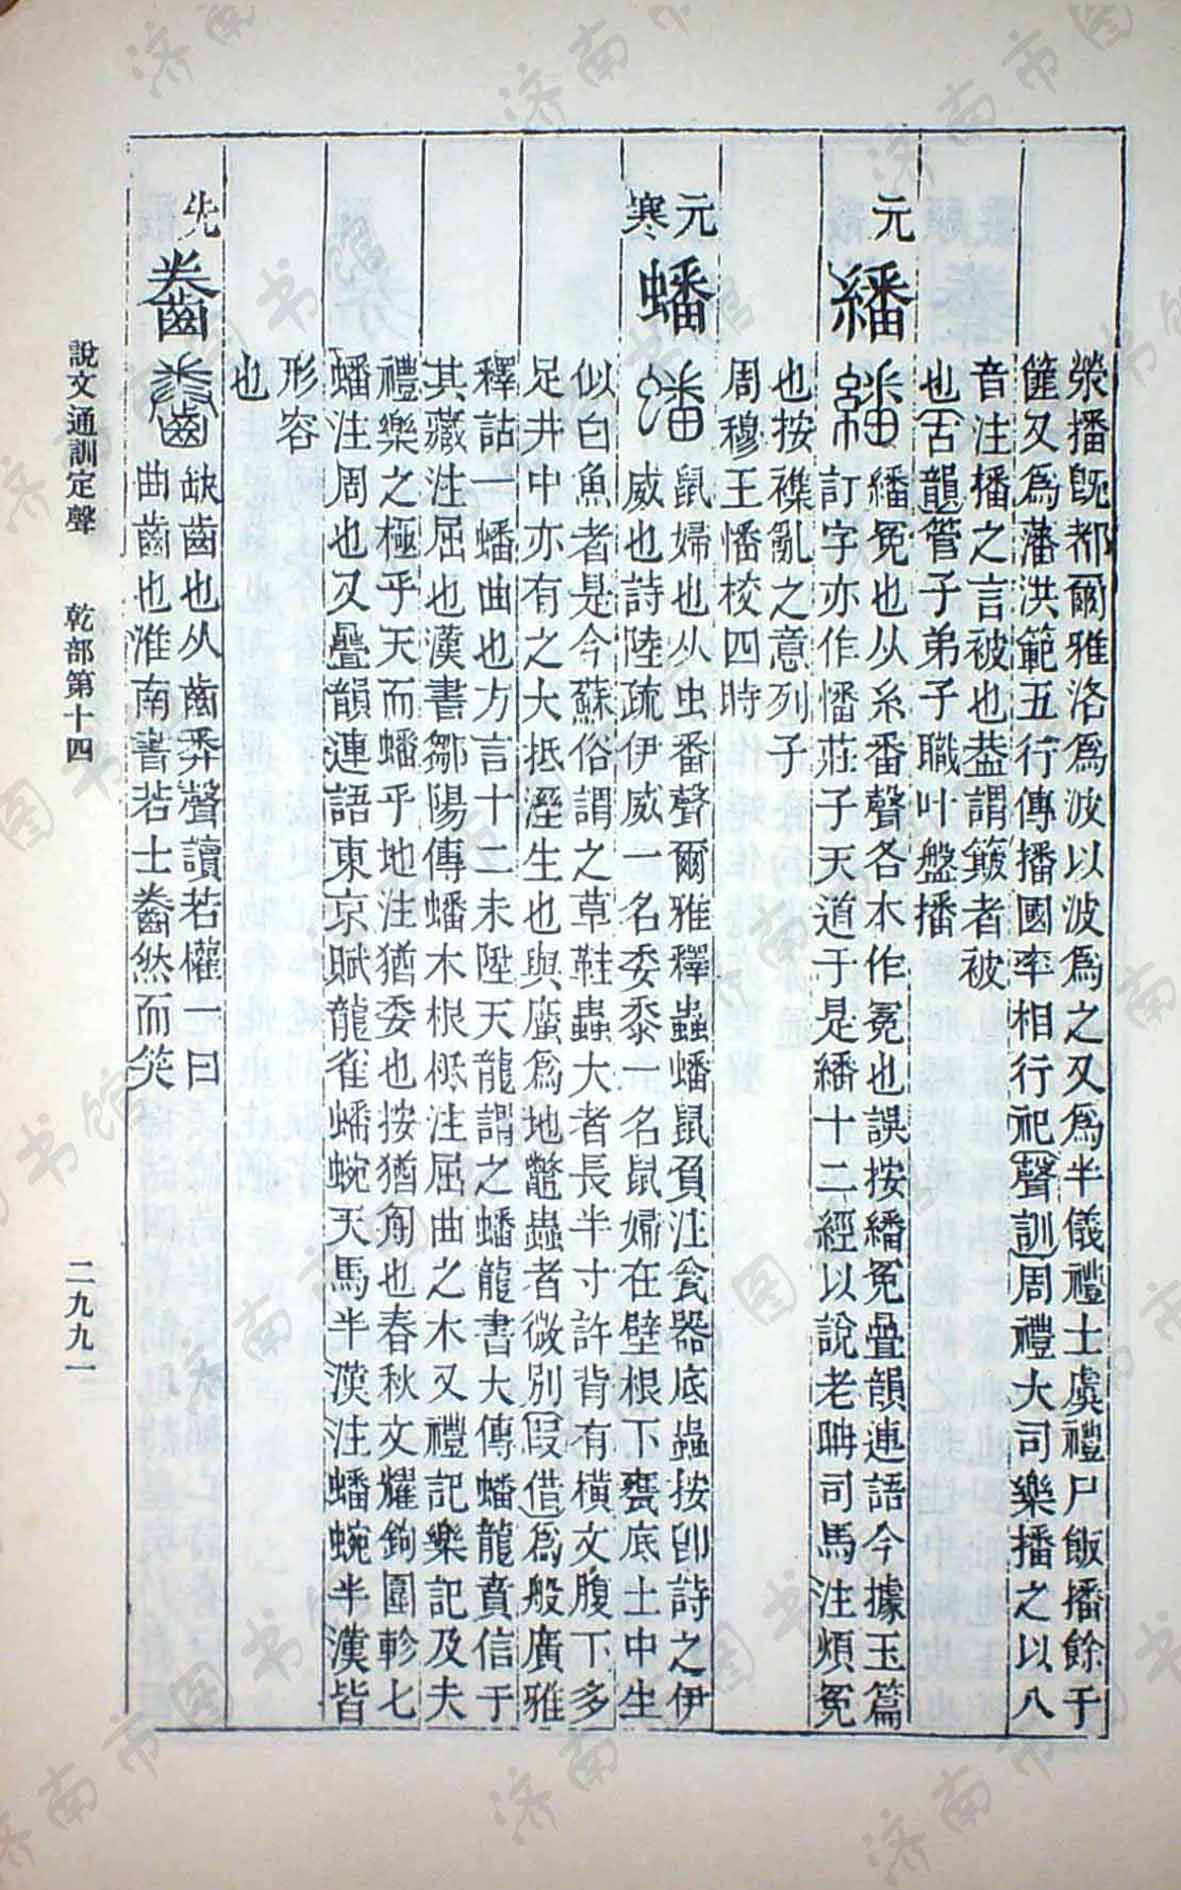 滎播旣都爾雅洛爲波以波爲之又爲半儀禮士虞禮尸飯播餘于
篚又爲藩洪範五行傳播國率相行祀聲訓周禮大司樂播之以八
音注播之言被也葢謂簸者被
也古韻管子弟子職叶盤播
元
繙
繙冕也从糸番聲各本作冕也誤按繙冕疊韻連語今據玉篇
訂字亦作憣莊子天道于是繙十二經以說老聃司馬注煩冕
也按襍亂之意列子
周穆王憣校四時
元
寒
蟠
鼠婦也从虫番聲爾雅釋蟲蟠鼠負注瓮器底蟲按卽詩之伊
威也詩陸疏伊威一名委黍一名鼠婦在壁根下甕底土中生
似白魚者是今蘇俗謂之草鞋蟲大者長半寸許背有橫文腹下多
足井中亦有之大抵溼生也與䗪爲地鼈蟲者微別叚借爲般廣雅
釋詁一蟠曲也方言十二未陞天龍謂之蟠龍書大傳蟠龍賁信于
其藏注屈也漢書鄒陽傳蟠木根柢注屈曲之木又禮記樂記及夫
禮樂之極乎天而蟠乎地注猶委也按猶匊也春秋文耀鉤圜軫七
蟠注周也又疊韻連語東京賦龍雀蟠蜿天馬半漢注蟠蜿半漢皆
形容
也
先
齤
缺齒也从齒𢍏聲讀若權一曰
曲齒也淮南書若士齤然而笑
說文通訓定聲 乾部第十四 二九九一
济南市图书馆